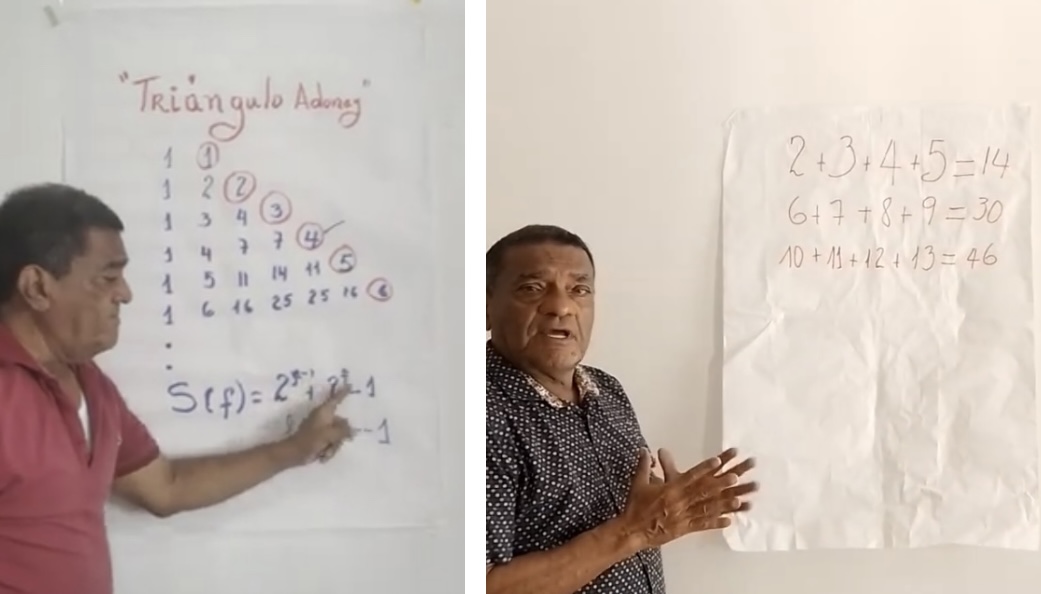 "Triángulo Adonay"
1 1
1 2 2
1 3 4 3
1 4 7 7 4
1 5 11 14 11 5
1 6 16 25 25 16 6
S(f) =
- 1
2+3+4+5=14
6+7+8+9=30
10+11+12+13=46